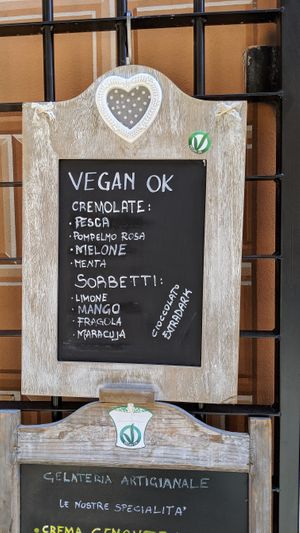 VEGAN OK
CREMOLATE:
• PESCA
• POMPELMO ROSA
• MELONE
• MENTA
SORBETTI:
• LIMONE
• MANGO
• FRAGOLA
• MARACUJA
CIOCCOLATO
EXTRADARK
GELATERIA ARTIGIANALE
LE NOSTRE SPECIALITA'
• CREMA